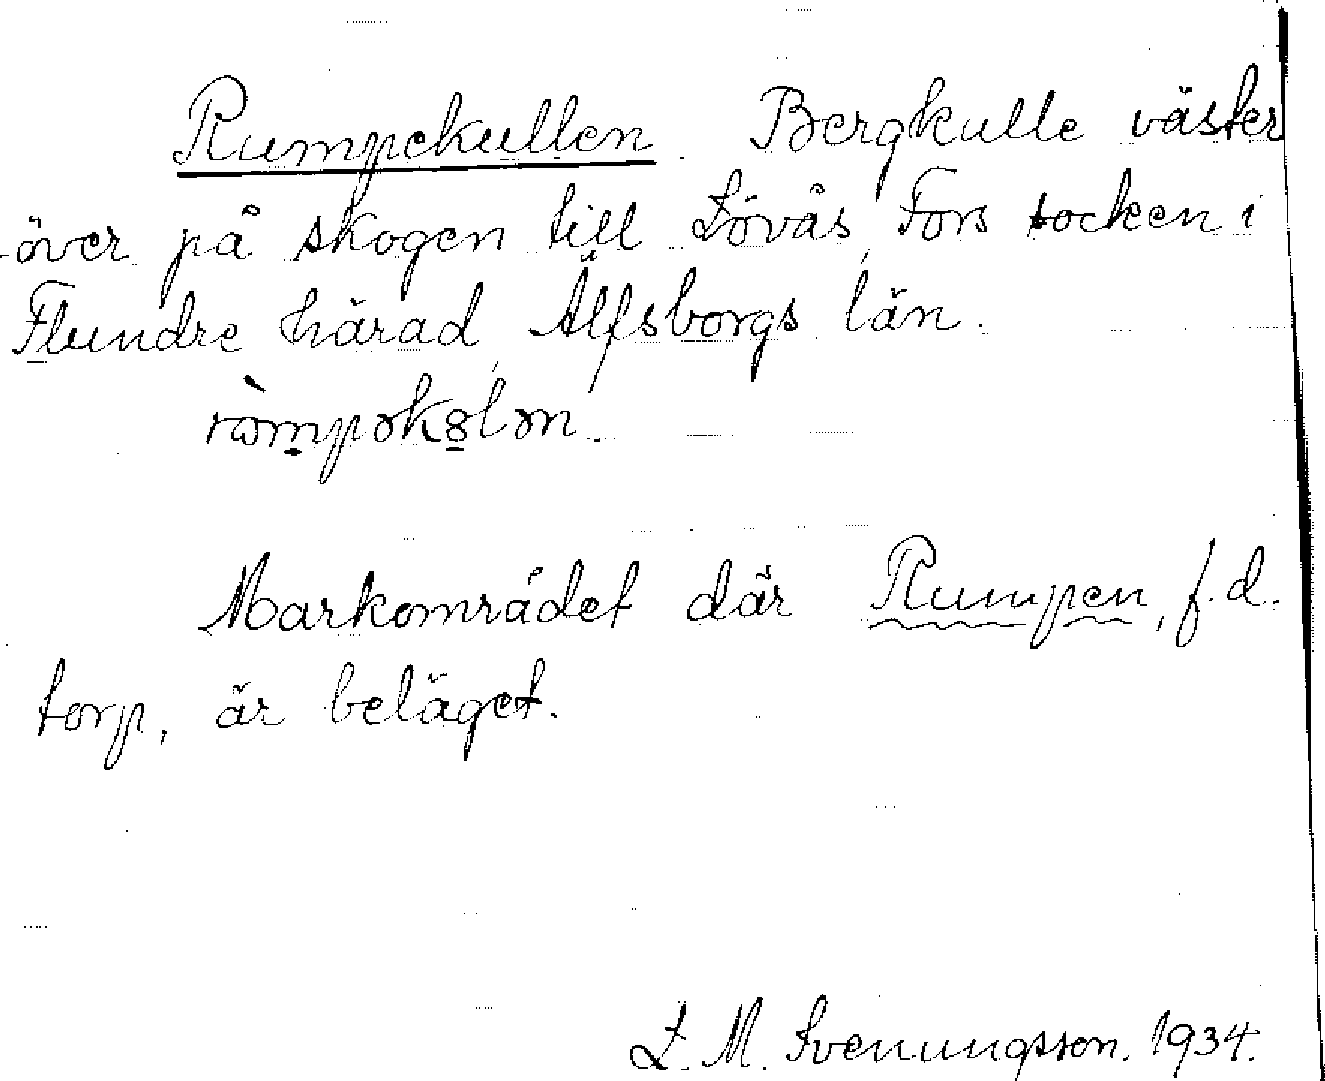 Rumpekullen. Bergkulle väster
över på skogen till Lövås, Fors socken i
Flundre härad, Älfsborgs län.
ròmpəkȣlən.
Markområdet där Rumpen, f.d.
torp, är beläget.
L. M. Svenungsson. 1934.